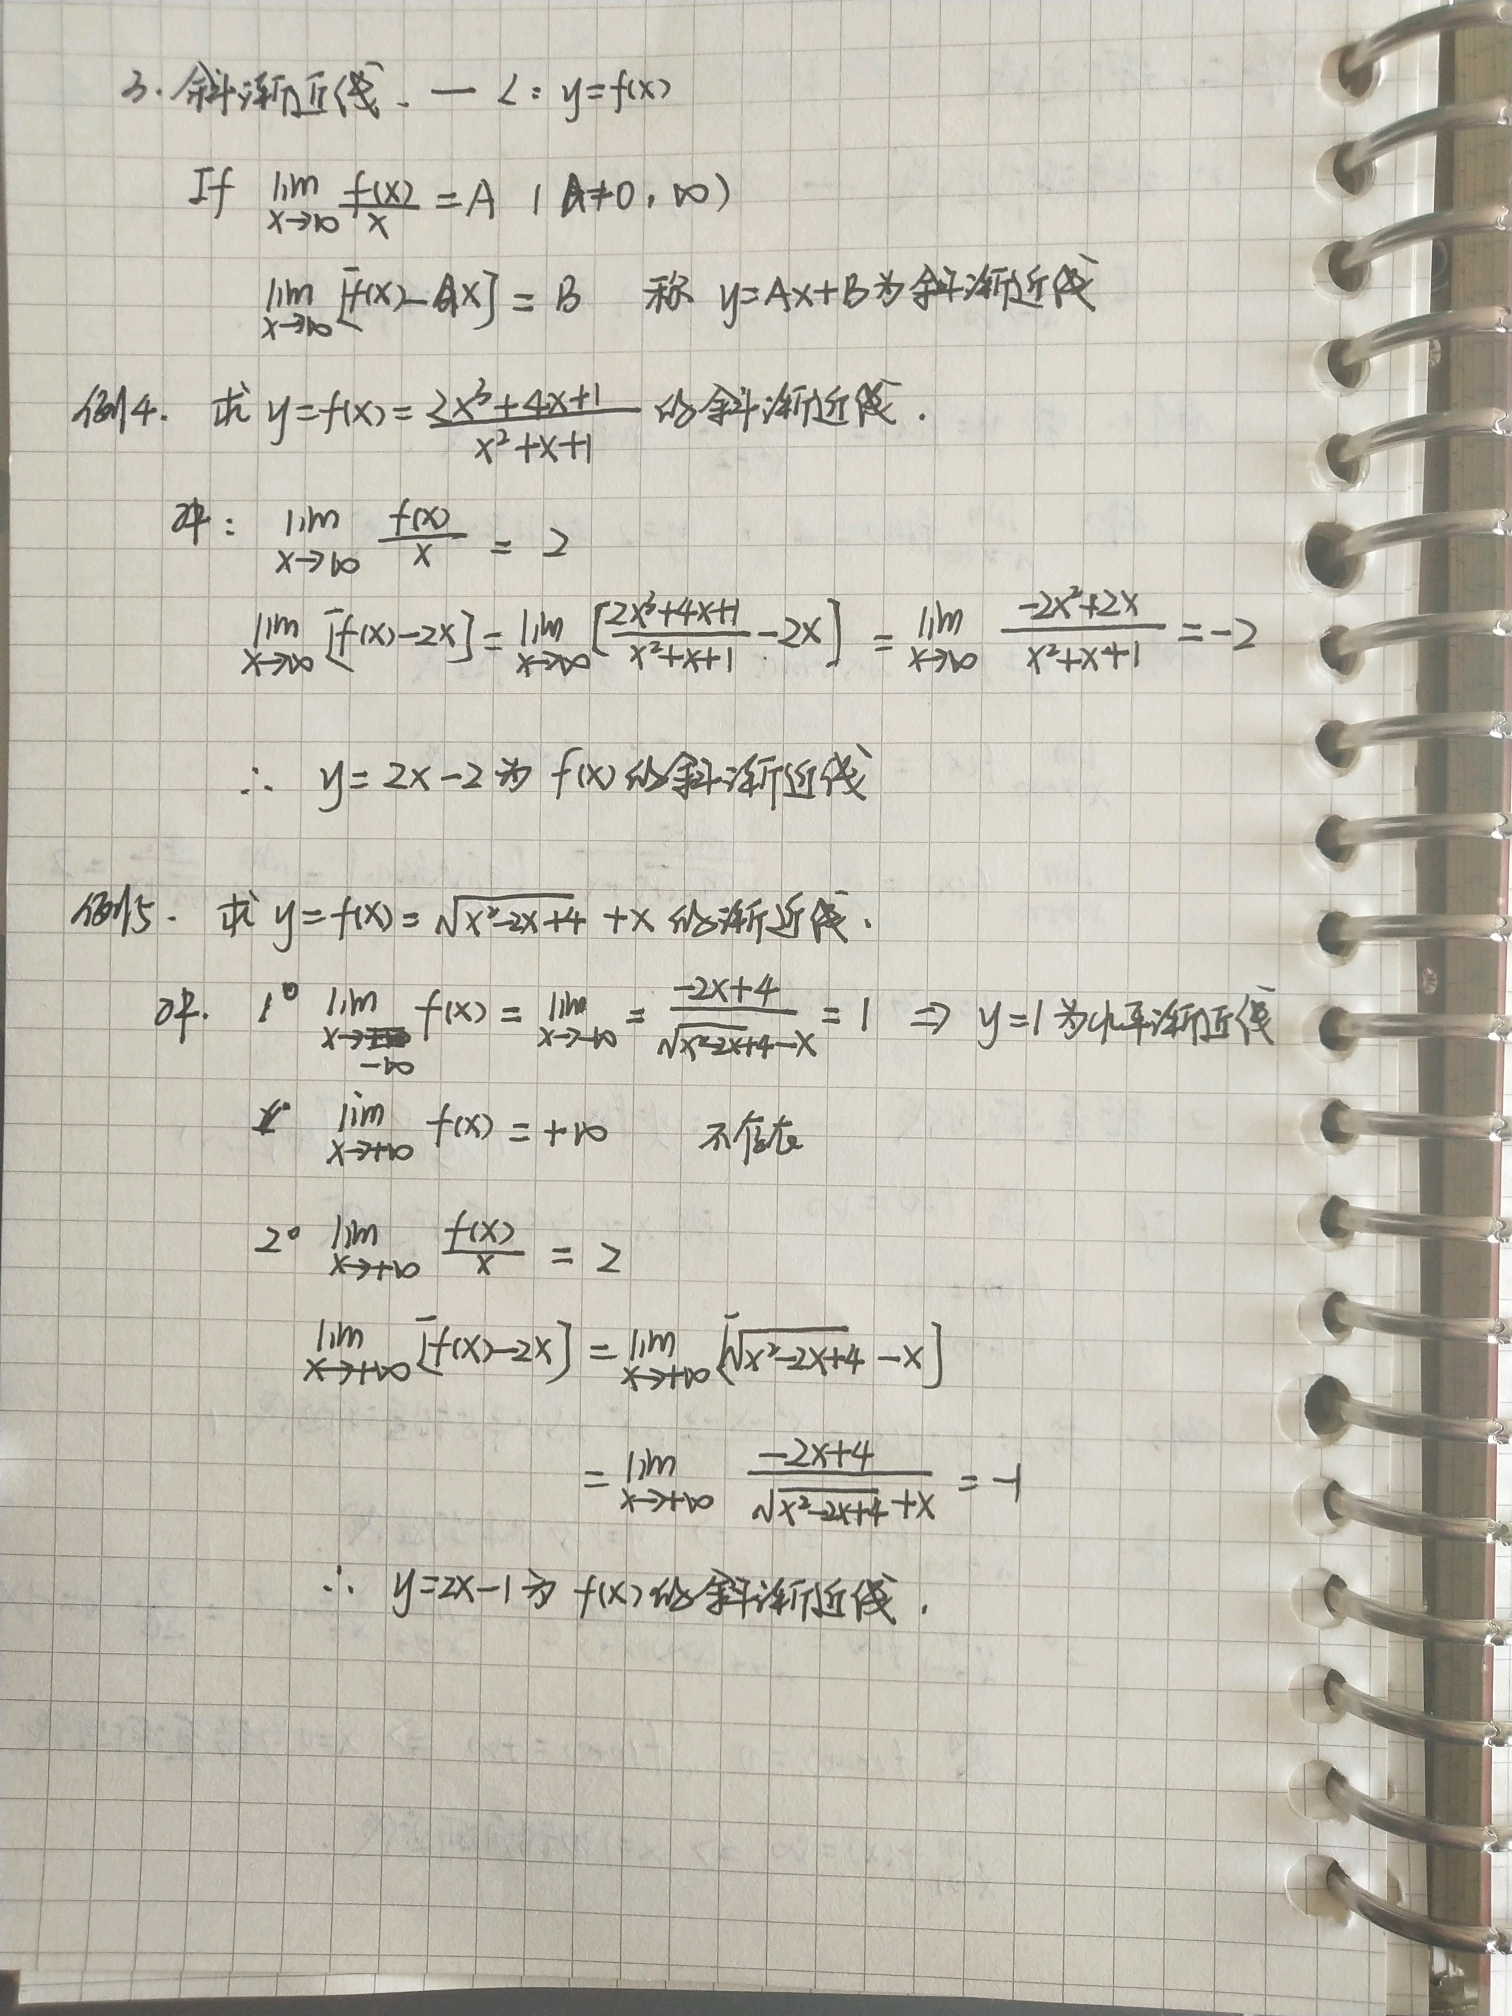 3. 斜渐近线. — L: y=f(x)
If lim x→∞ f(x)/x = A (A≠0, ∞)
lim x→∞ [f(x)-Ax] = B 称 y=Ax+B为斜渐近线
例4. 求 y=f(x)= (2x³+4x+1)/(x²+x+1) 的斜渐近线.
解: lim x→∞ f(x)/x = 2
lim x→∞ [f(x)-2x] = lim x→∞ [(2x³+4x+1)/(x²+x+1) -2x] = lim x→∞ (-2x²+2x)/(x²+x+1) = -2
∴ y=2x-2为 f(x)的斜渐近线
例5. 求 y=f(x)=√(x²-2x+4) +x 的渐近线.
解. 1° lim x→-∞ f(x) = lim x→-∞ = (-2x+4)/(√(x²-2x+4) -x) = 1 ⇒ y=1为水平渐近线
lim x→+∞ f(x) = +∞ 不存在
2° lim x→+∞ f(x)/x = 2
lim x→+∞ [f(x)-2x] = lim x→+∞ [√(x²-2x+4) -x]
= lim x→+∞ (-2x+4)/(√(x²-2x+4) +x) = -1
∴ y=2x-1为 f(x)的斜渐近线.